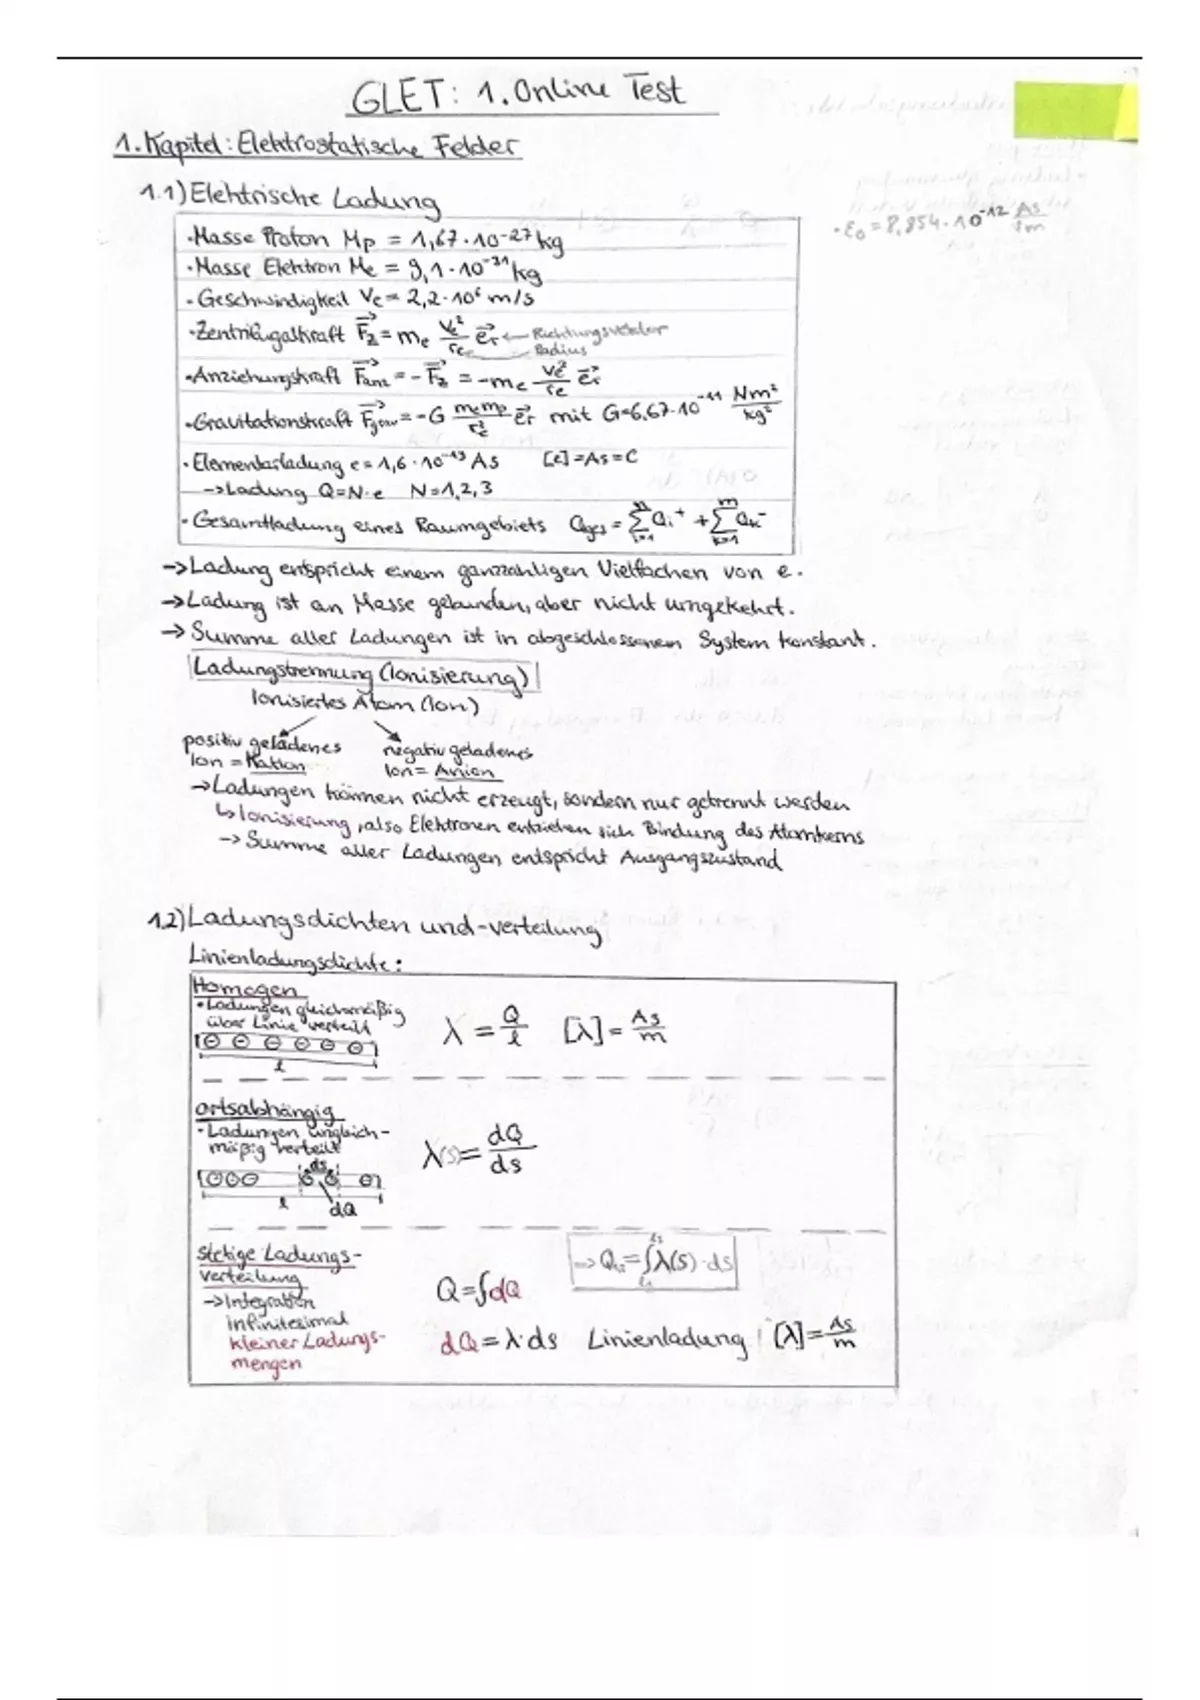 GLET: 1. Online Test
1. Kapitel: Elektrostatische Felder
1.1) Elektrische Ladung
• ε₀ = 8,854 · 10⁻¹² As/Vm
• Masse Proton Mp = 1,67 · 10⁻²⁷ kg
• Masse Elektron Me = 9,1 · 10⁻³¹ kg
• Geschwindigkeit Ve = 2,2 · 10⁶ m/s
• Zentrifugalkraft F⃗z = me ve²/re e⃗r ← Richtungsvektor
Radius
• Anziehungskraft F⃗anz = -F⃗z = -me ve²/re e⃗r
• Gravitationskraft F⃗grav = -G memp/re² e⃗r mit G=6,67·10⁻¹¹ Nm²/kg²
• Elementarladung e = 1,6 · 10⁻¹⁹ As [e] = As = C
→ Ladung Q=N·e N=1,2,3
• Gesamtladung eines Raumgebiets Qges = Σⁿᵢ₌₁ Qi⁺ + Σᵐₖ₌₁ Qk⁻
→ Ladung entspricht einem ganzzahligen Vielfachen von e.
→ Ladung ist an Masse gebunden, aber nicht umgekehrt.
→ Summe aller Ladungen ist in abgeschlossenem System konstant.
Ladungstrennung (Ionisierung)
Ionisiertes Atom (Ion)
positiv geladenes
Ion = Kation
negativ geladenes
Ion = Anion
→ Ladungen können nicht erzeugt, sondern nur getrennt werden
↳ Ionisierung, also Elektronen entziehen sich Bindung des Atomkerns
→ Summe aller Ladungen entspricht Ausgangszustand
1.2) Ladungsdichten und -verteilung
Linienladungsdichte:
Homogen
• Ladungen gleichmäßig
über Linie verteilt
l
λ = Q/l [λ] = As/m
ortsabhängig
• Ladungen ungleich-
mäßig verteilt
ds
l
dQ
λ(s) = dQ/ds
stetige Ladungs-
verteilung
→ Integration
infinitesimal
kleiner Ladungs-
mengen
Q = ∫dQ
=> Q₁,₂ = ∫λ(s)·ds
dQ = λ·ds Linienladung [λ] = As/m